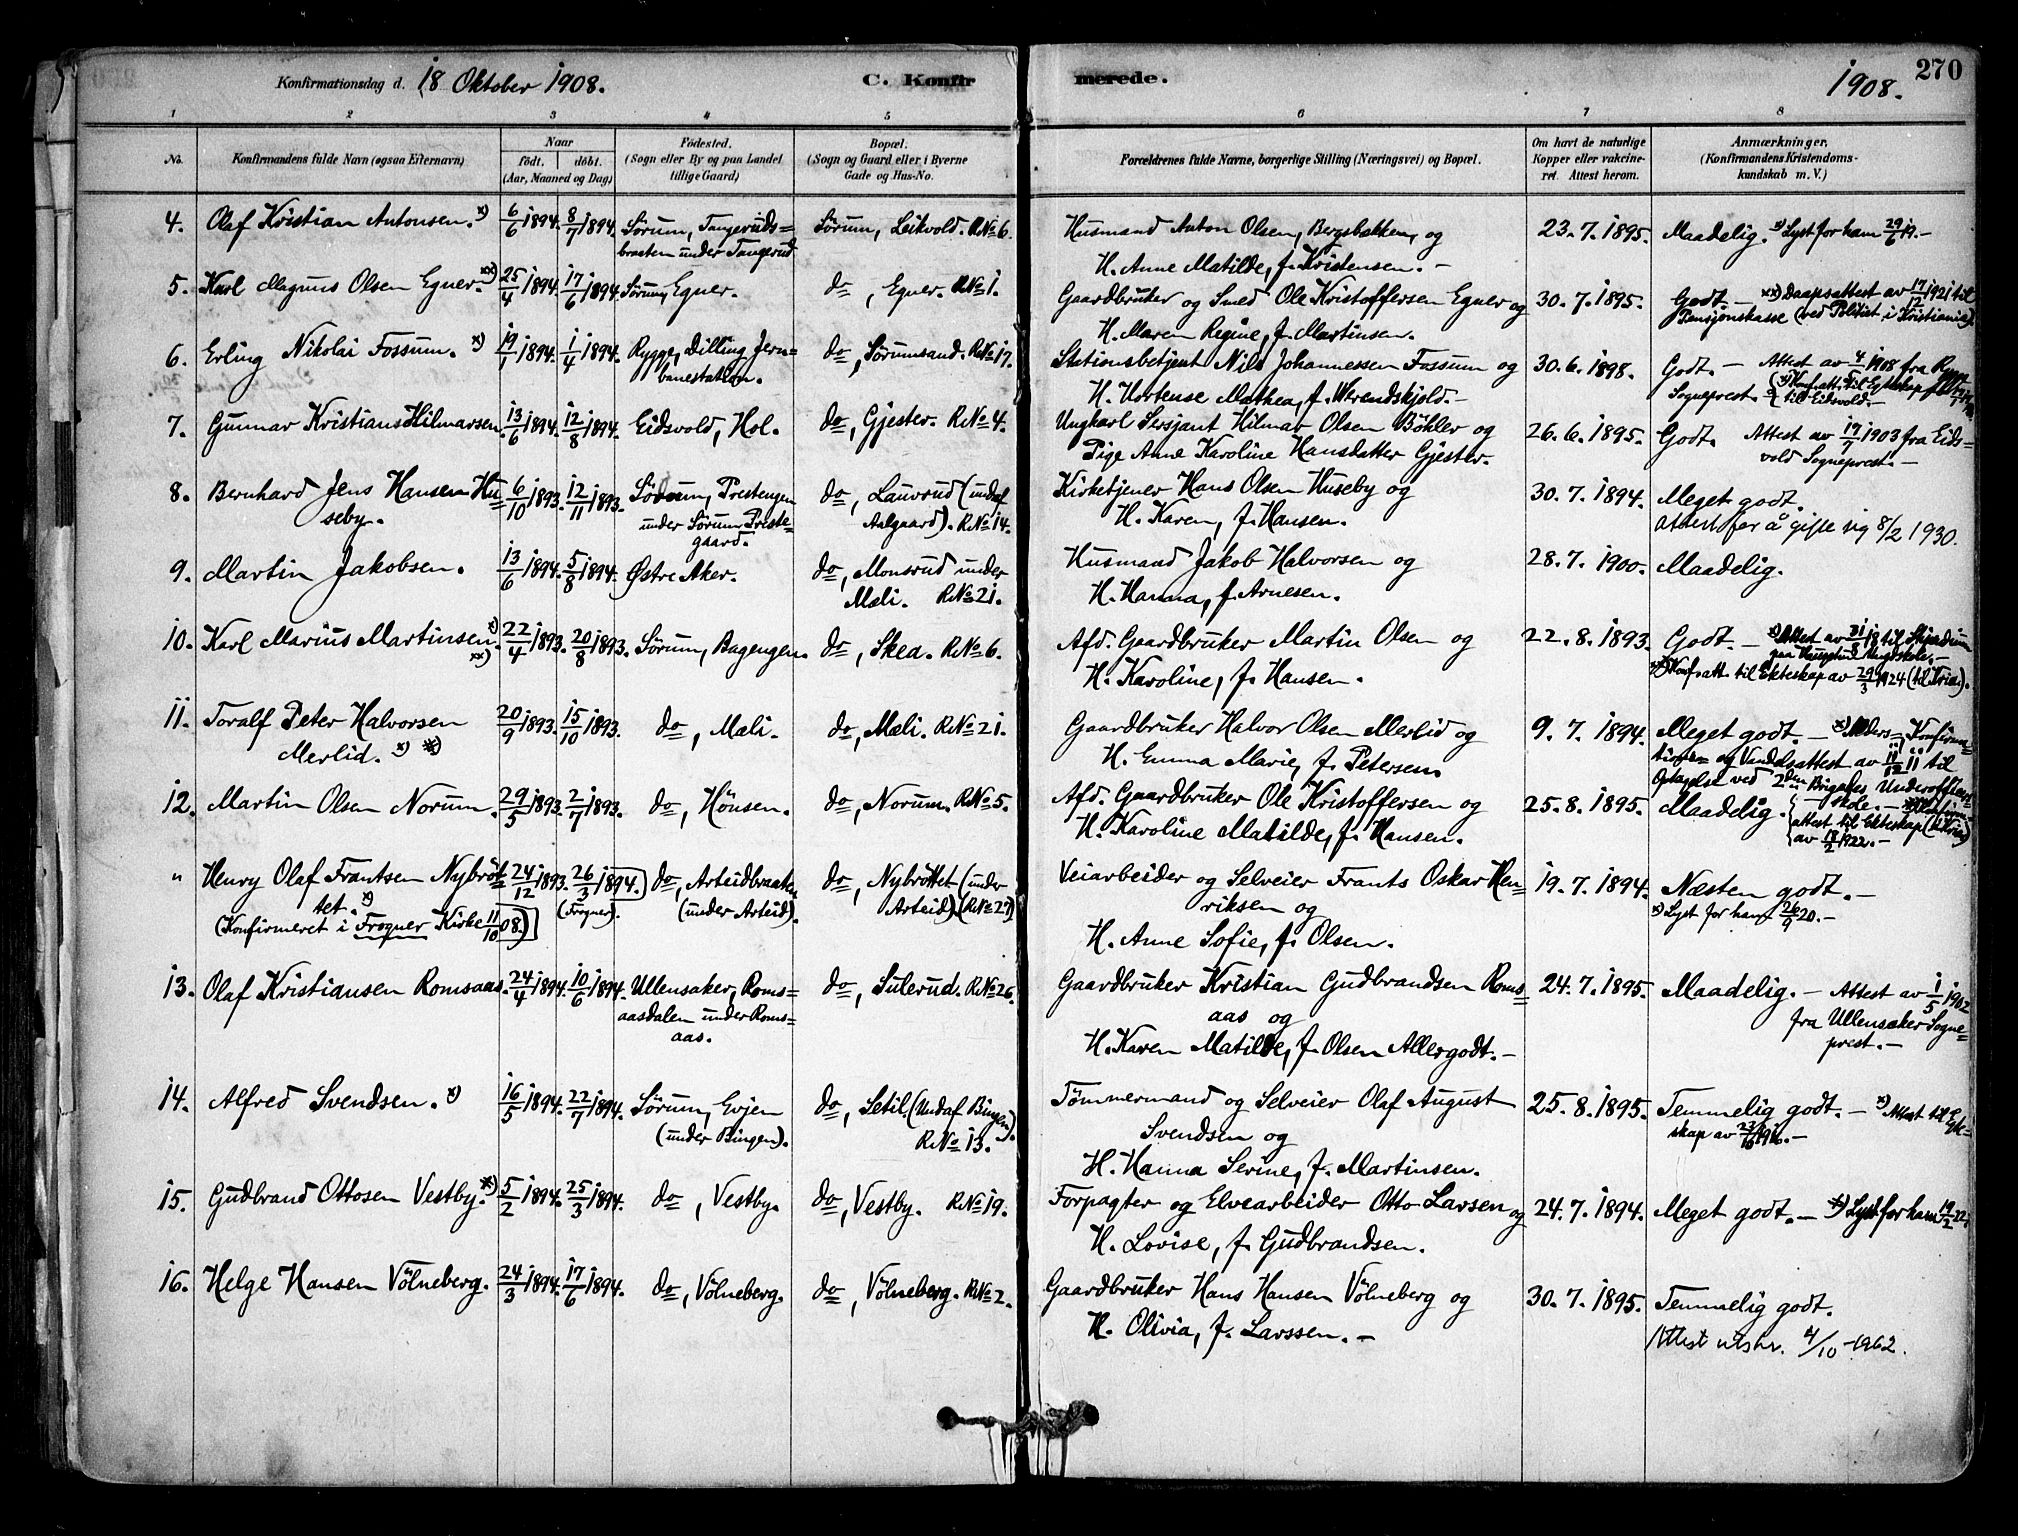 270
Konfirmationsdag d. 18 Oktober 1908. C. Konfirmerede. 1908.
1 2 3 4 5 6 7 8
No. Konfirmandens fulde Navn (ogsaa Efternavn) Naar født, døbt. (Aar, Maaned og Dag) Födested. (Sogn eller By og paa Landet tillige Gaard) Bopæl. (Sogn og Gaard eller i Byerne Gade og Hus-No. Forældrenes fulde Navne, borgerlige Stilling (Næringsvei) og Bopæl. Om havt de naturlige Kopper eller vakcineret. Attest herom. Anmærkninger. (Konfirmandens Kristendomskundskab m. V.)
4. Olaf Kristian Antonsen. x) 6/6 1894. 8/7 1894. Sörum, Tangeruds= Sörum, Leikvold. RNo 6. Husmand Anton Olsen, Bergsbakken, og 23. 7. 1895. Maadelig. x) Lyst for ham 29/6 19.-
braaten under Tangerud H. Anne Matilde, f. Kristensen. -
5. Karl Magnus Olsen Egner. xx) 25/4 1894. 17/6 1894. Sörum, Egner. do, Egner. RNo 1. Gaardbruker og Smed Ole Kristoffersen Egner og 30. 7. 1895. Godt. - xx) Daapsattest av 17/12 1921 til
H. Maren Regine, f. Martinsen. Pensjonskasse (ved Politiet i Kristiania).
6. Erling Nikolai Fossum. x) 19/1 1894. 1/4 1894. Rygge, Dilling Jern= do, Sörumsand. RNo 17. Stationsbetjent Nils Johannessen Fossum og 30. 6. 1898. Godt. - Attest av 4/5 1908 fra Rygge
banestation. H. Hortense Mathea, f. Werendskjold. - Sogneprest. x) Konf.att. til Egteskap til Eidsvold.-
7. Gunnar Kristians Hilmarsen 13/6 1894. 12/8 1894. Eidsvold, Hol. do, Gjester. RNo 4. Ungkarl Sersjant Hilmar Olsen Böhler og 26. 6. 1895. Godt. Attest av 17/7 1903 fra Eids=
Pige Anne Karoline Hansdatter Gjester. vold Sogneprest. -
8. Bernhard Jens Hansen Hu= 6/10 1893. 12/11 1893. Sörum, Prestengen do, Lauvrud (undaf Kirketjener Hans Olsen Huseby og 30. 7. 1894. Meget godt.
seby. under Sörum Preste= Aalgaard). RNo 14. H. Karen, f. Hansen. attest for å gifte sig 8/2 1930.
gaard.
9. Martin Jakobsen. 13/6 1894. 5/8 1894. Østre Aker. do, Monsrud under Husmand Jakob Halvorsen og 28. 7. 1900. Maadelig.
Mæli. RNo 21. H. Hanna, f. Arnesen.
10. Karl Marius Martinsen. x) xx) 22/4 1893. 20/8 1893. Sörum, Bagengen. do, Skea. RNo 6. Afd. Gaardbruker Martin Olsen og 22. 8. 1893. Godt. - x) Attest av 31/8 18 til
H. Karoline, f. Hansen. paa Haugetun Ungdskole.-
xx) Konf.att. til Ekteskap av 29/3 1924 (til Kria).
11. Toralf Peter Halvorsen 20/9 1893. 15/10 1893. do, Mæli. do, Mæli. RNo 21. Gaardbruker Halvor Olsen Merlid og 9. 7. 1894. Meget godt. - x) Alders= Konfirma=
Merlid. x) xx) H. Emma Marie, f. Petersen. tions= og Vandelsattest av 11/12 11 til
Optagelse ved 2den Brigades Underofficers=
skole. -
12. Martin Olsen Norum. 29/5 1893. 2/7 1893. do, Hönsen. do, Norum. RNo 5. Afd. Gaardbruker Ole Kristoffersen og 25. 8. 1895. Maadelig.
H. Karoline Matilde, f. Hansen. attest til Ekteskap (til Kria)
av 18/2 1922. -
" Henry Olaf Frantsen Nybröt= 24/12 1893. 26/3 1894. do, Arteidbraaten do, Nybröttet (under Veiarbeider og Selveier Frants Oskar Hen= 19. 7. 1894. Næsten godt. -
tet. x) (Frogner). (under Arteid). Arteid). (RNo 27) riksen og x) Lyst for ham 26/9 20. -
(Konfirmeret i Frogner Kirke 11/10 08.) H. Anne Sofie, f. Olsen.
13. Olaf Kristiansen Romsaas. 24/4 1894. 10/6 1894. Ullensaker, Roms= do, Sulerud. RNo 26. Gaardbruker Kristian Gudbrandsen Roms= 24. 7. 1895. Maadelig. - Attest av 1/5 1902
aasdalen under Roms= aas og fra Ullensaker Sogne=
aas. H. Karen Matilde, f. Olsen Allergodt. - prest. -
14. Alfred Svendsen. x) 16/5 1894. 22/7 1894. Sörum, Evjen do, Setil (Undaf Bingen). Tömmermand og Selveier Olaf August 25. 8. 1895. Temmelig godt. - x) Attest til Egte=
(under Bingen). RNo 13. Svendsen og skap av
H. Hanna Serine, f. Martinsen.
15. Gudbrand Ottosen Vestby. x) 5/2 1894. 25/3 1894. do, Vestby. do, Vestby. RNo 19. Forpagter og Elvearbeider Otto Larsen og 24. 7. 1894. Meget godt. - x) Lyst for ham 19/2 22.
H. Lovise, f. Gudbrandsen.
16. Helge Hansen Völneberg. 24/3 1894. 17/6 1894. do, Völneberg. do, Völneberg. RNo 2. Gaardbruker Hans Hansen Völneberg og 30. 7. 1895. Temmelig godt.
H. Olivia, f. Larssen. - Attest utskr. 4/10 - 1962.